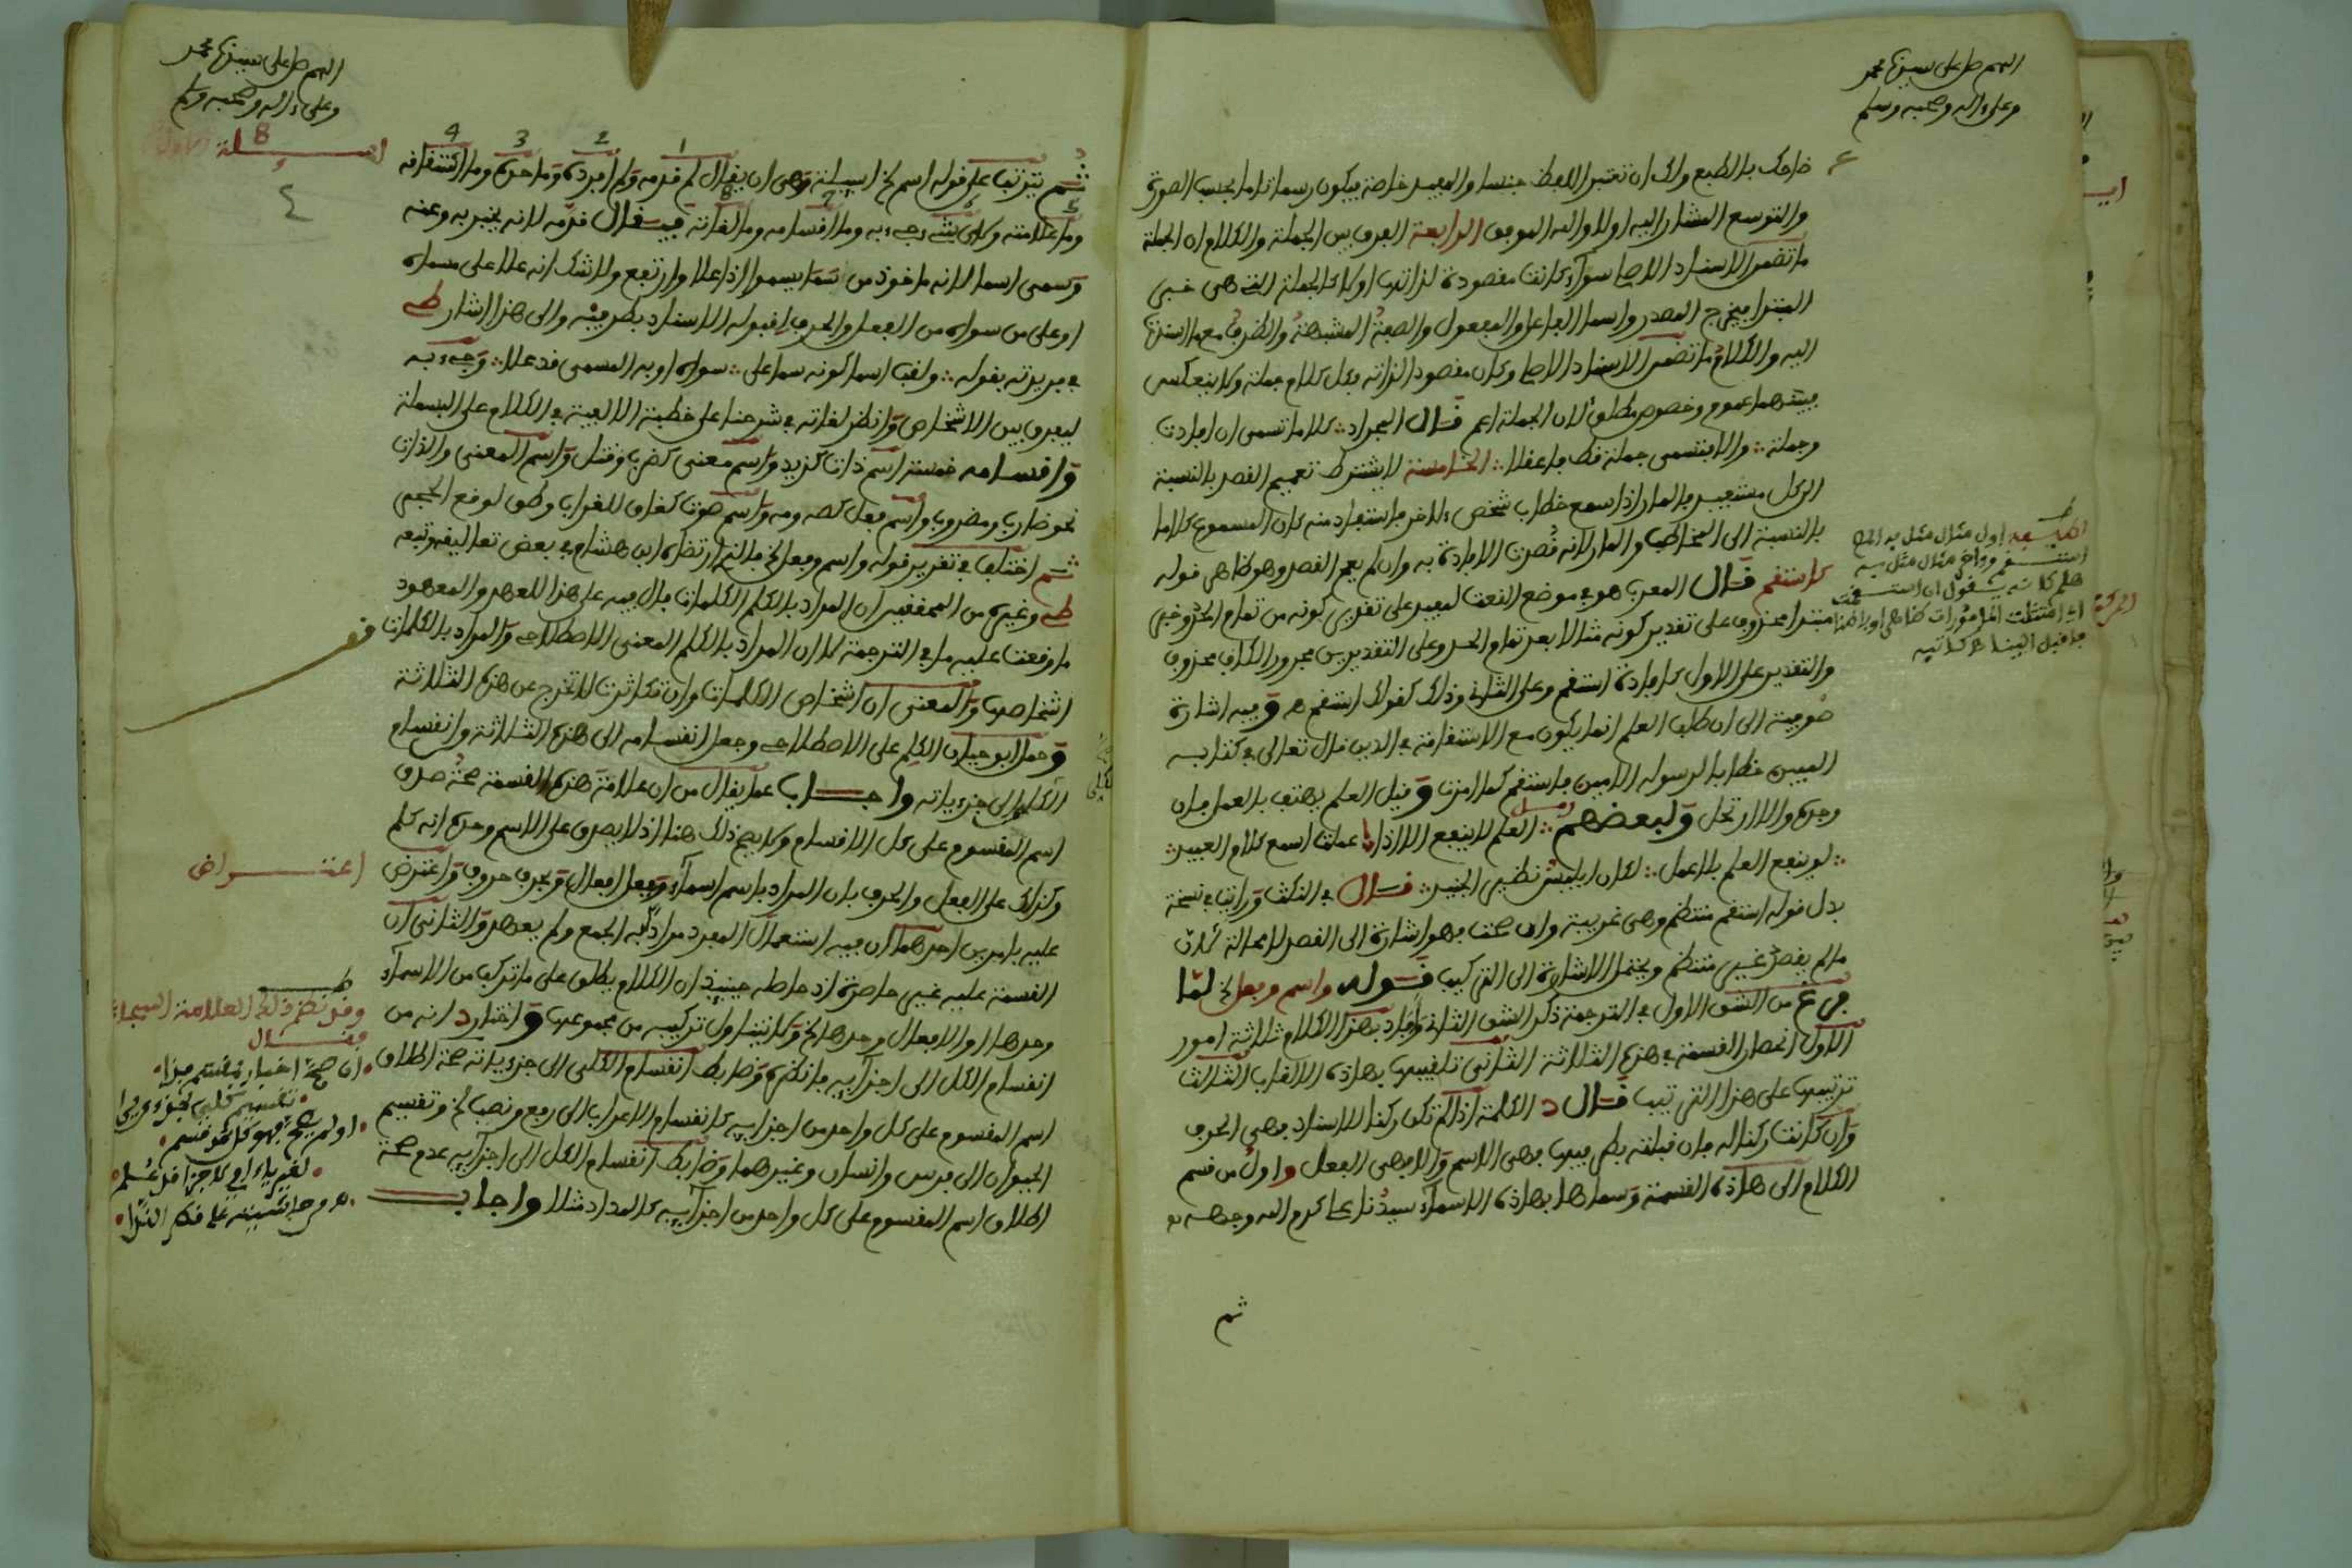 اللهم صل على سيدنا محمد
وعلى ءاله وصحبه وسلم
ضاحك بالطبع ولك ان تعتبر اللفظ جنسا والمفيد خاصة فيكون رسما تاما بحسب الصورة
والتوسع المشار اليه اولا والله الموفق الرابعة الفرق بين الجملة والكلام ان الجملة
ما تضمن الاسناد الاصلي سواء كانت مقصودة لذاتها اولا كالجملة التي هي خبر
المبتدا فيخرج المصدر واسما الفاعل والمفعول والصفة المشبهة والظرف مع ما اسندت
اليه والكلام ما تضمن الاسناد الاصلي وكان مقصودا لذاته فكل كلام جملة ولا ينعكس
فبينهما عموم وخصوص مطلق لان الجملة اعم قال المجراد كلاما تسمى ان افادت
وجملة والا فتسمى جملة فقط فاعقلا الخامسة لا يشترط تعميم القصد بالنسبة
الى كل مستفيد فالمار اذا سمع خطاب شخص ءاخر فاستفاد منه كان المسموع كلاما
بالنسبة الى المخاطب والمار لانه قصدت الافادة به وان لم يعم القصد وهو ظاهر قوله
كاستقم قال المعرب هو في موضع النعت لمفيد على تقدير كونه من تمام الحد وخبر
مبتدا محذوف على تقدير كونه مثالا بعد تمام الحد وعلى التقديرين مجرور الكاف محذوف
والتقدير على الاول كافادة استقم وعلى الثاني وذلك كقولك استقم ه وفيه اشارة
صوفية الى ان طلب العلم انما يكون مع الاستقامة في الدين قال تعالى في كتابه
المبين خطابا لرسوله الامين فاستقم كما امرت وقيل العلم يهتف بالعمل فان
وجده والا ارتحل ولبعضهم العلم لا ينفع الا اذا عملت اسمع كلام المفيد
لو ينفع العلم بلا عمل لكان ابليس نظير الجنيد قال في النكت ورايت في نسخة
بدل قوله استقم منتظم وهي غريبة وان صحت فهو اشارة الى القصد لا محالة لان
ما لم يقصد غير منتظم ويحتمل الاشارة الى التركيب قوله واسم وفعل الخ لما
فرغ من الشق الاول في الترجمة ذكر الشق الثاني وافاد بهذا الكلام ثلاثة امور
الاول انحصار القسمة في هذه الثلاثة الثاني تلقيبها بهاذه الالقاب الثالث
ترتيبها على هذا الترتيب قال د الكلمة اذا لم تكن ركنا للاسناد فهي الحرف
وان كانت ركنا له فان قبلته بطرفيها فهي الاسم والا فهي الفعل واول من قسم
الكلام الى هاذه القسمة وسماها بهاذه الاسماء سيدنا علي كرم الله وجهه
ثم
اول مثال مثل به المص
استقم وءاخر مثال مثل به
اللهم صل على سيدنا محمد
وعلى ءاله وصحبه وسلم
8
1 2 3 4
ثم يترتب على قوله اسم الخ اسئلة وهي ان يقال لم قدمه ولم افرده وما حده وما اشتقاقه
5 6 7 8
وما علامته ولاي شيء جيء به وما اقسامه وما لغاته فيقال قدمه لانه يخبر به وعنه
وسمي اسما لانه ماخوذ من سما يسموا اذا علا وارتفع ولا شك انه علا على مسماه
او على من سواه من الفعل والحرف لقبوله الاسناد بطرفيه والى هذا اشار ط
في فريدته بقوله ولقب اسما لكونه سما على سواه او به المسمى قد علا وجيء به
ليفرق بين الاشخاص وانظر لغاته في شرحنا على خطبة الالفية في الكلام على البسملة
واقسامه خمسة اسم ذات كزيد واسم معنى كضرب وقتل واسم المعنى والذات
نحو ضارب ومضروب واسم فعل كصه ومه واسم صوت كغاق للغراب وطق لوقع الحجر
ثم اختلف في تقرير قوله واسم وفعل الخ فالذي ارتضاه ابن هشام في بعض تعاليقه وتبعه
ط وغيره من المحققين ان المراد بالكلم الكلمات فال فيه على هذا للعهد والمعهود
ما وقعت عليه ما في الترجمة لان المراد بالكلم المعنى الاصطلاحي والمراد بالكلمات
اشخاصها والمعنى ان اشخاص الكلمات وان تكاثرت لا تخرج عن هذه الثلاثة
وحمل ابو حيان الكلم على الاصطلاحي وجعل انقسامه الى هذه الثلاثة وانقسام
الكلي الى جزءياته واجاب عما يقال من ان علامة هذه القسمة صحة صدق
اسم المقسوم على كل الاقسام ولا يصح ذلك هنا اذ لا يصدق على الاسم وحده انه كلم
وكذلك على الفعل والحرف بان المراد باسم اسماء وبفعل افعال وبحرف حروف واعترض
عليه بامرين احدهما ان فيه استعمال المفرد مرادا به الجمع ولم يعهد والثاني ان
القسمة عليه غير حاصرة اذ حاصله حينئذ ان الكلام يطلق على ما تركب من الاسماء
وحدها او الافعال وحدها الخ ولا يتناول تركيبه من مجموعها واختار د انه من
انقسام الكل الى اجزائه فانظره وضابط انقسام الكلي الى جزءياته صحة اطلاق
اسم المقسوم على كل واحد من اجزائه كانقسام الاعراب الى رفع ونصب الخ وتقسيم
الحيوان الى فرس وانسان وغيرهما وضابط انقسام الكل الى اجزائه عدم صحة
اطلاق اسم المقسوم على كل واحد من اجزائه كالمداد مثلا واجاب
اعتراض
وقد نظم ذلك العلامة السجاعي
فقال
ان صح اخبار بمقسم فذا
او لم يصح فهو كل قد قسم